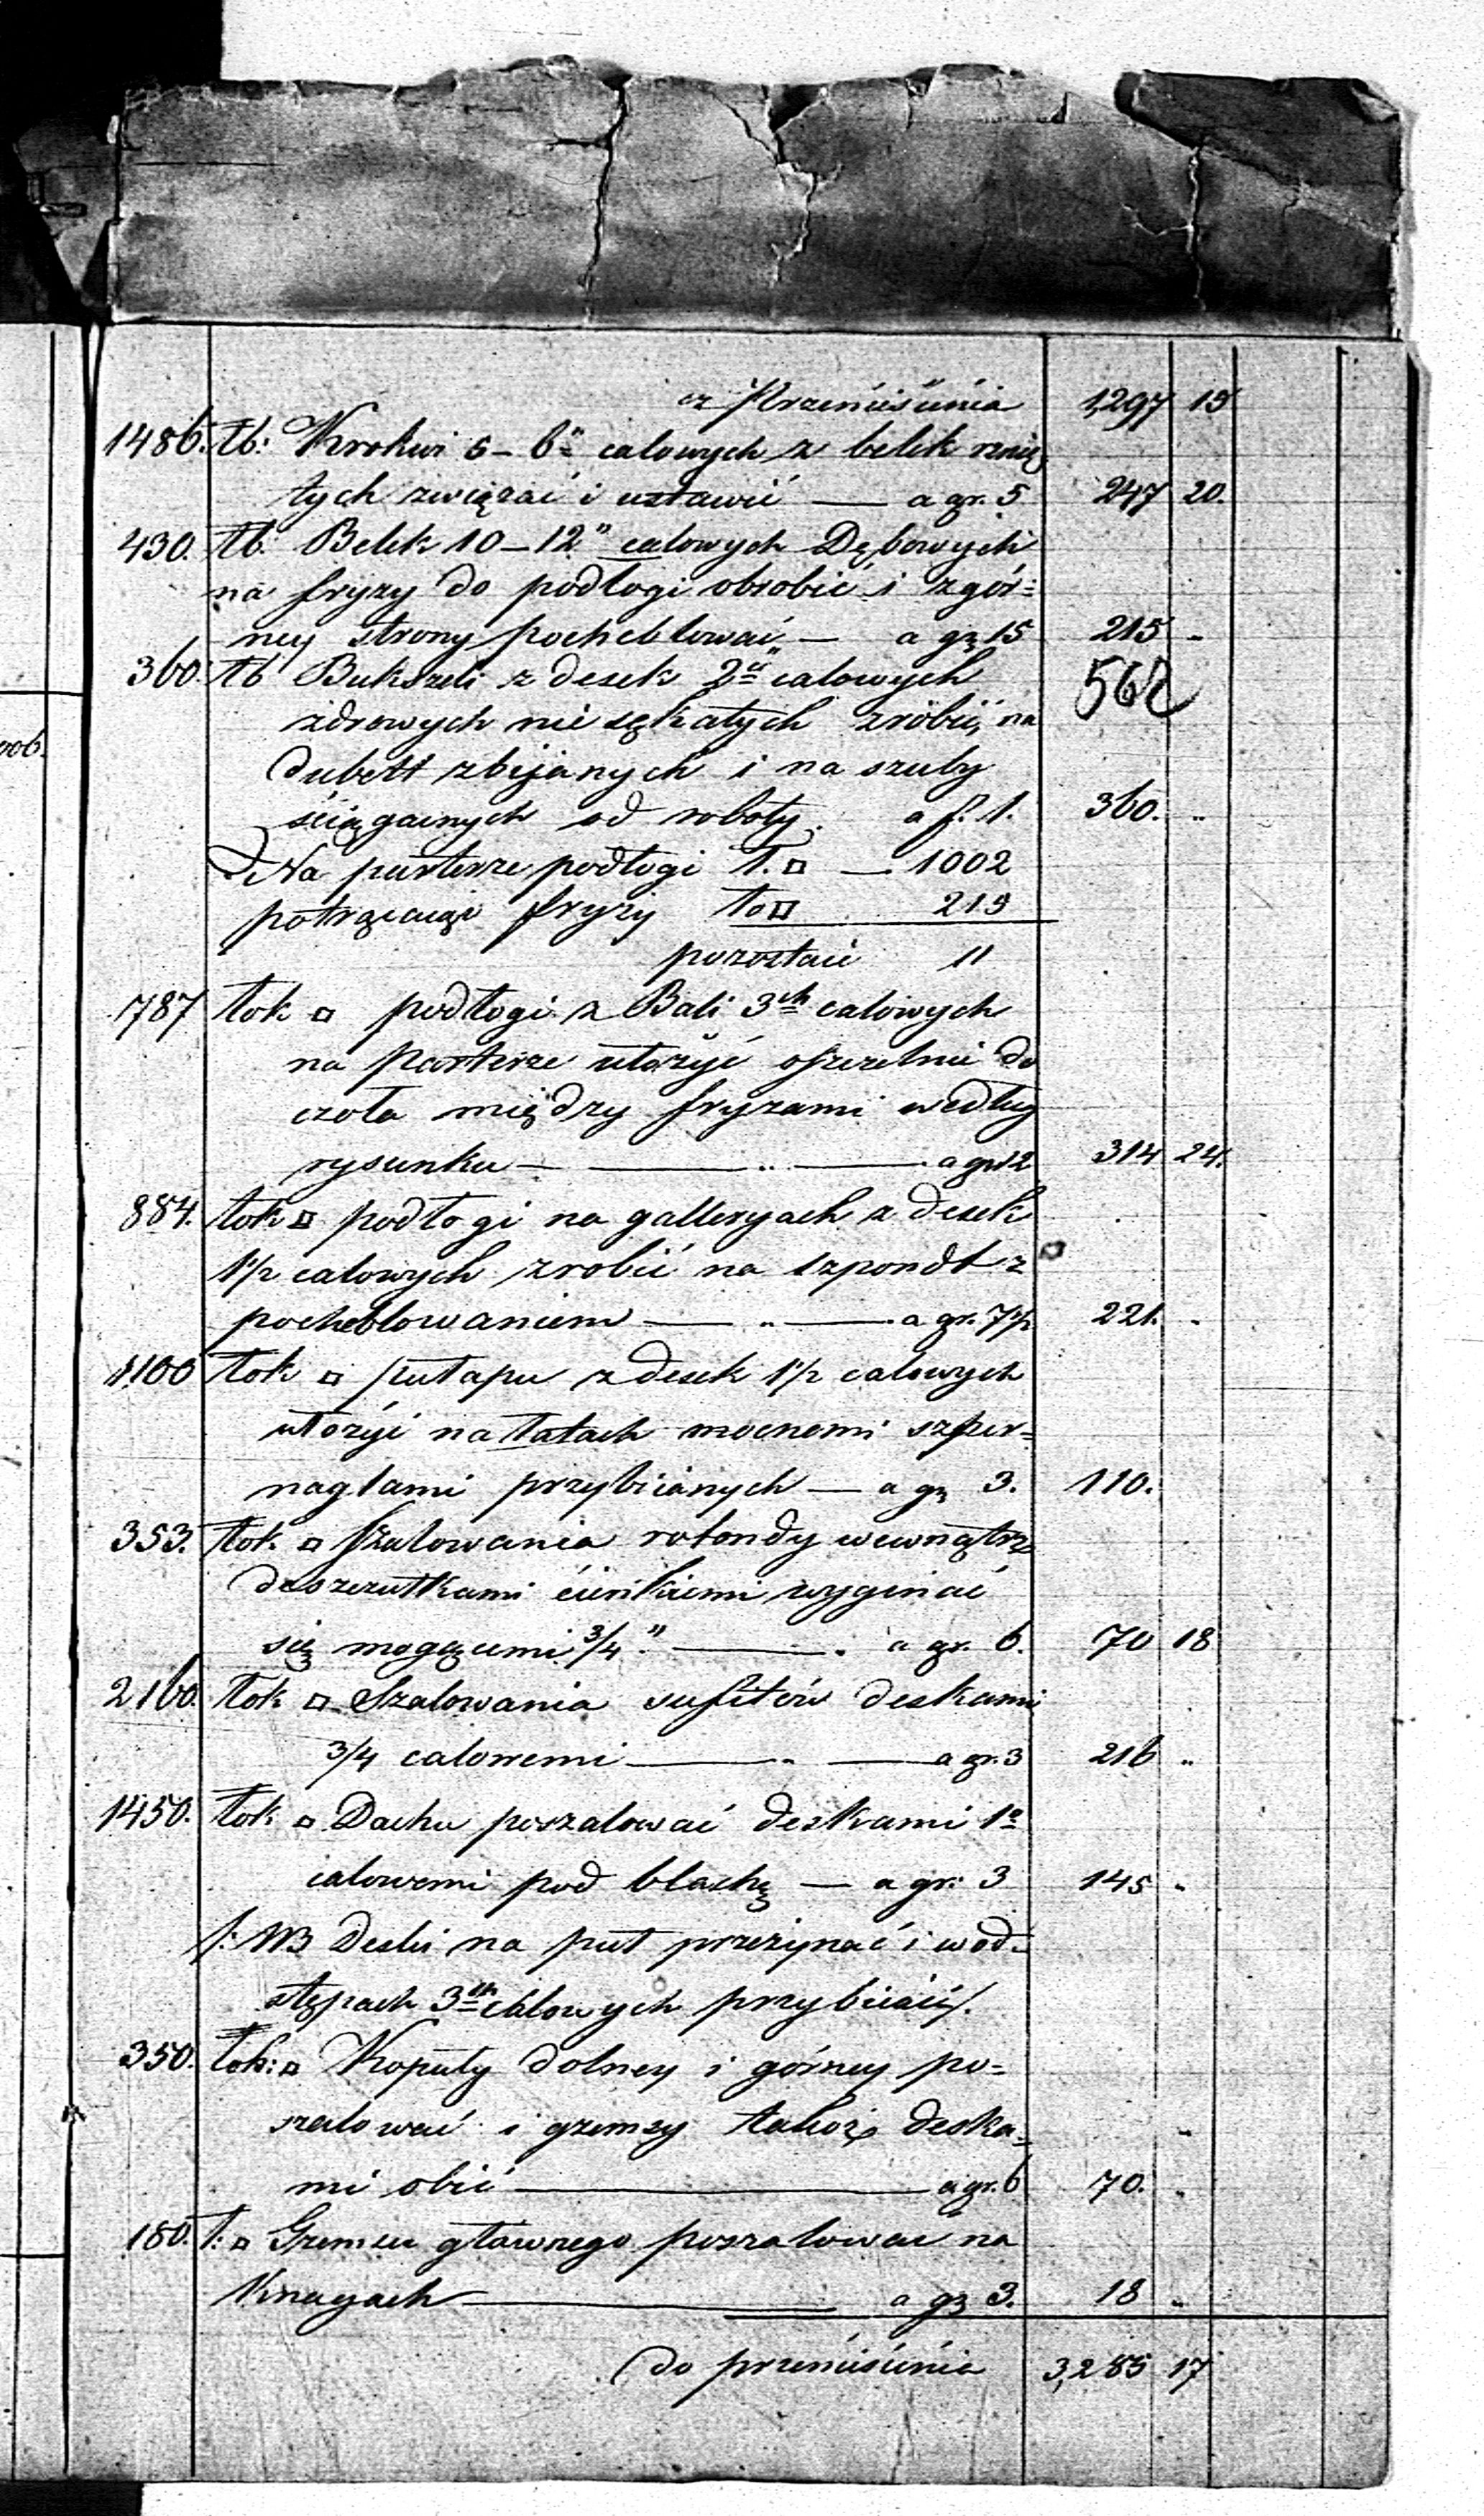 z Przeniesienia 1,297 15
1486. tb: Krokwi 5–6" calowych z belek rznię
tych związać i ustawić — a gr. 5 247 20.
430. tb: Belek 10–12" calowych Dębowych
na fryzy do podłogi obrobić i zgór=
ney strony pocheblować — a gr 15 215 "
360. tb Bukszteli z desek 2" calowych 562
zdrowych nie sękatych zrobić, na
dubelt zbijanych i na szruby
ściąganych od roboty. a f. 1. 360. "
Na parterze podłogi T. □ — 1002
potrąciwszy fryzy to □ 215
pozostaie "
787 tok □ podłogi z Bali 3ch calowych
na Parterze ułożyć szczelnie do
czoła między fryzami według
rysunku — " — a gr 12 314 24.
884. tok □ podłogi na galleryach z desek
1 1/2 calowych zrobić na szpondt z
pocheblowaniem — " — a gr. 7 1/2 221. "
1100 tok □ pułapu z desek 1 1/2 calowych
ułożyć na łatach mocnemi szper=
naglami przybicianych — a gr 3. 110.
353. tok □ Szalowania rotondy wewnątrz
deszczułkami cieńkiemi wyginać
się mogącemi 3/4" — a gr. 6. 70 18
2160. tok □ Szalowania sufitów deskami
3/4 calowemi — " — a gr. 3 216 "
1450. tok □ Dachu poszalować deskami 1o
calowemi pod blachę — a gr: 3 145 "
/: NB Deski na puł przerzynać i w od=
stępach 3ch calowych przybiciać /.
350. tok: □ Kopuły dolney i górney po=
szalować i gzemsy takoż deska= "
mi obić — a gr. 6 70. "
180. t: □ Gzemsu głównego poszalować na
Knagach — a gr 3. 18 "
do przeniesienia 3,285 17